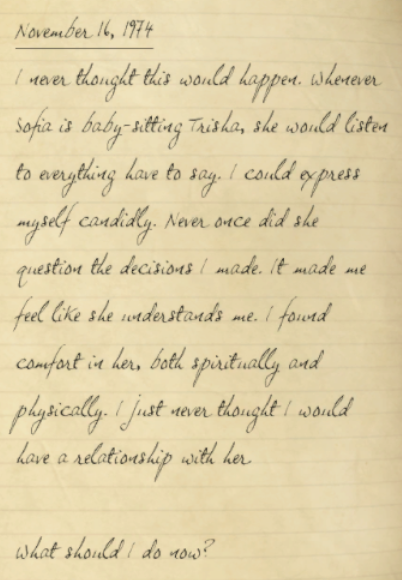 November 16, 1974
I never thought this would happen. Whenever
Sofia is baby-sitting Trisha, she would listen
to everything have to say. I could express
myself candidly. Never once did she
question the decisions I made. It made me
feel like she understands me. I found
comfort in her, both spiritually and
physically. I just never thought I would
have a relationship with her
What should I do now?